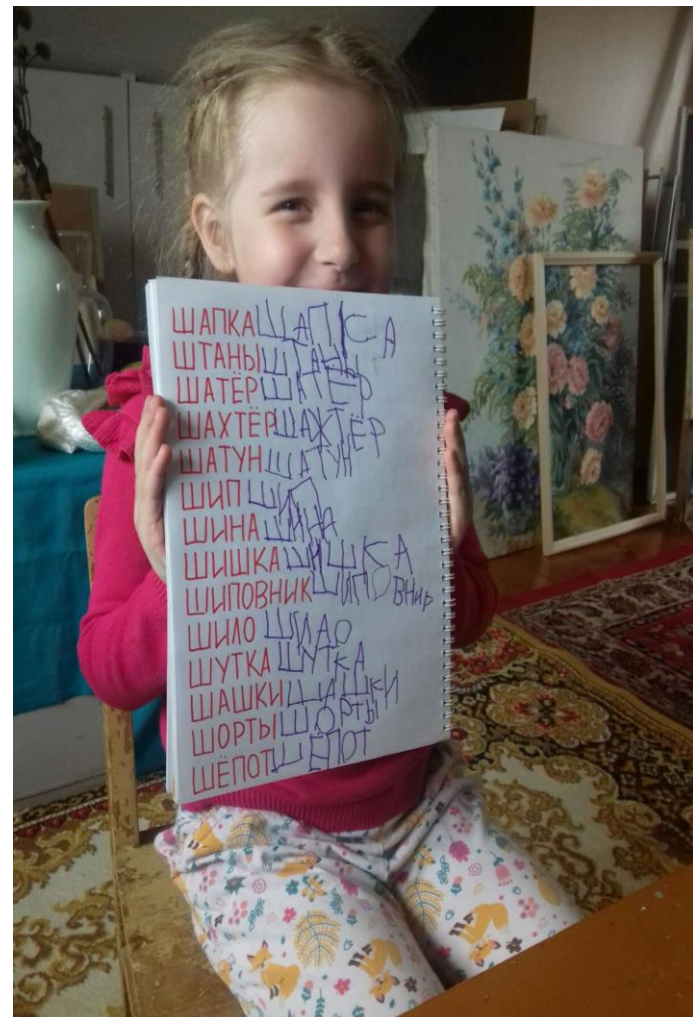 ШАПКА ШАПКА
ШТАНЫ ШТАНЫ
ШАТЁР ШАТЁР
ШАХТЁР ШАХТЁР
ШАТУН ШАТУН
ШИП ШИП
ШИНА ШИНА
ШИШКА ШИШКА
ШИПОВНИК ШИПОВНИР
ШИЛО ШИЛО
ШУТКА ШУТКА
ШАШКИ ШАШКИ
ШОРТЫ ШОРТЫ
ШЁПОТ ШЁПОТ